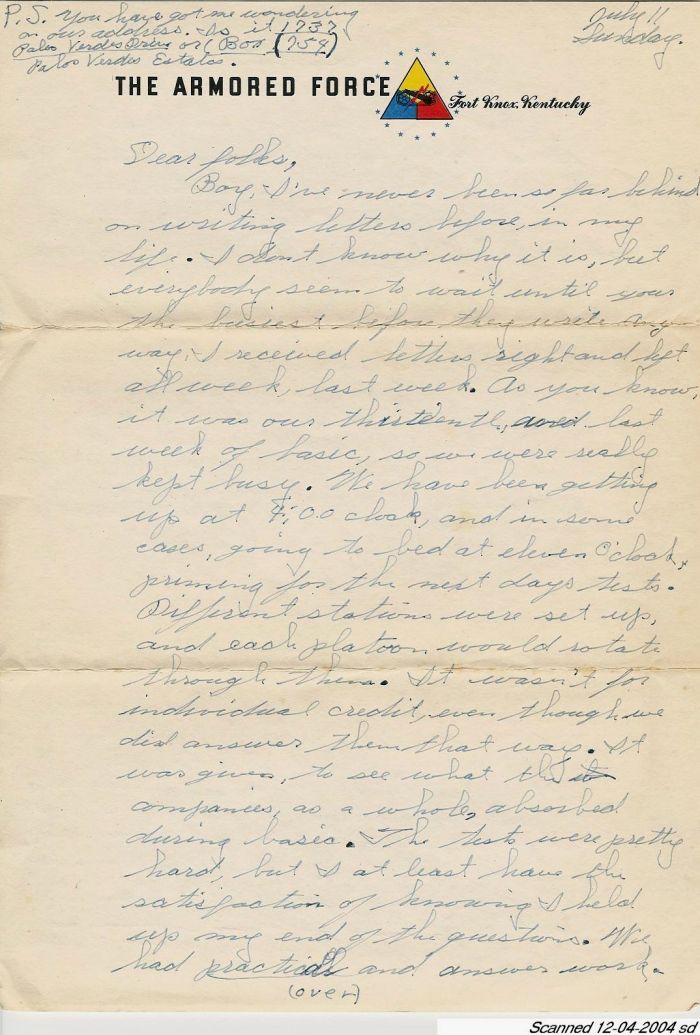 P.S. You have got me wondering
on our address. Is it 1737
Palos Verdes Drive or (Box (754)
Palos Verdes Estates.
July 11
Sunday.
THE ARMORED FORCE
Fort Knox, Kentucky
Dear folks,
Boy, I've never been so far behind
on writing letters before, in my
life. I don't know why it is, but
everybody seem to wait until your
the busiest before they write any
way, I received letters right and left
all week, last week. As you know,
it was our thirteenth, and last
week of basic, so we were really
kept busy. We have been getting
up at 4:00 clock, and in some
cases, going to bed at eleven o'clock,
priming for the next days tests.
Different stations were set up,
and each platoon would rotate
through them. It wasn't for
individual credit, even though we
did answer them that way. It
was given, to see what the
companies, as a whole, absorbed
during basic. The tests were pretty
hard, but I at least have the
satisfaction of knowing I held
up my end of the questions. We
had practical and answer work.
(over)
Scanned 12-04-2004 sd